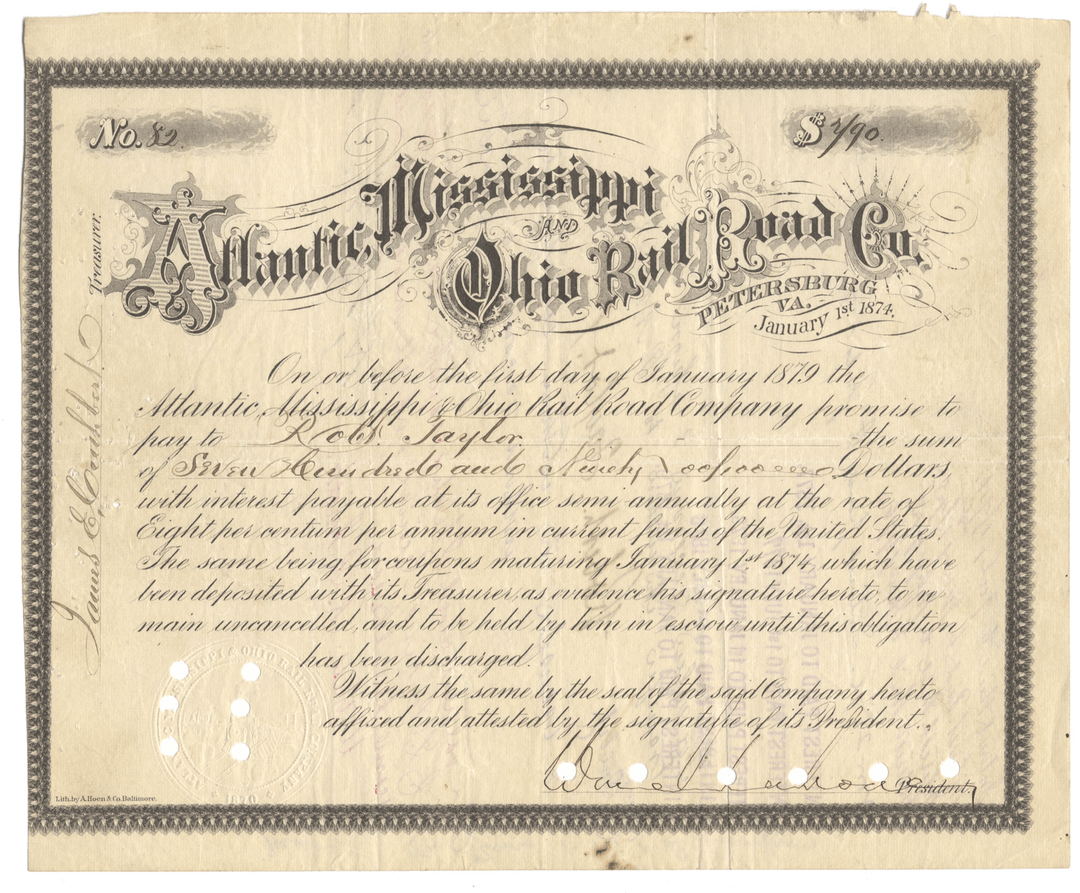 No. 82
$790.
Atlantic, Mississippi
AND
Ohio Rail Road Co.
PETERSBURG
VA.
January 1st 1874.
On or before the first day of January 1879 the
Atlantic, Mississippi & Ohio Rail Road Company promise to
pay to Robt. Taylor the sum
of Seven Hundred and Ninety 00/100 Dollars,
with interest payable at its office semi annually at the rate of
Eight per centum per annum in current funds of the United States.
The same being for coupons maturing January 1st 1874, which have
been deposited with its Treasurer, as evidence his signature hereto, to re
main uncancelled, and to be held by him in escrow until this obligation
has been discharged.
Witness the same by the seal of the said Company hereto
affixed and attested by the signature of its President.
President,
Treasurer.
James E.
Lith. by A. Hoen & Co. Baltimore.